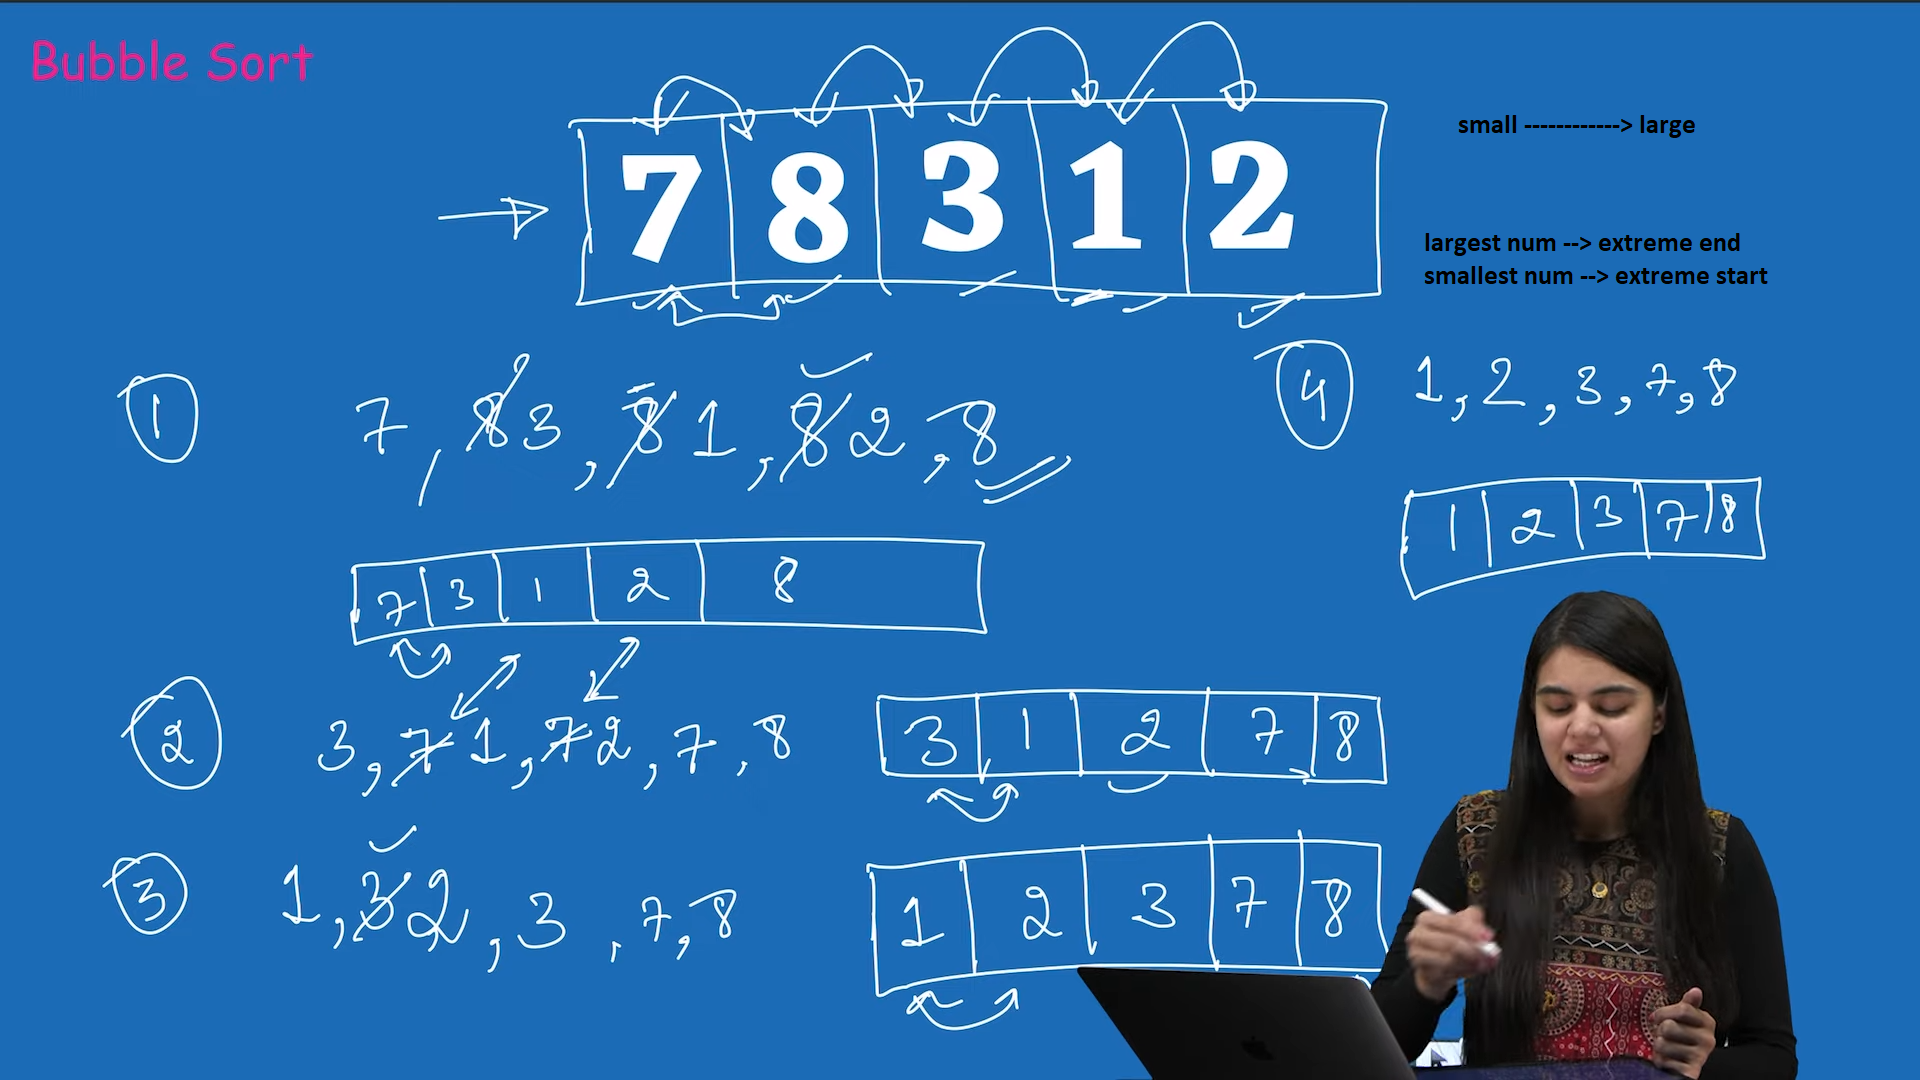 Bubble Sort
7 8 3 1 2
small ------------> large
largest num --> extreme end
smallest num --> extreme start
1 7, 8 3, 8 1, 8 2, 8
7 3 1 2 8
2 3, 7 1, 7 2, 7, 8
3 1 2 7 8
3 1, 3 2, 3, 7, 8
1 2 3 7 8
4 1, 2, 3, 7, 8
1 2 3 7 8